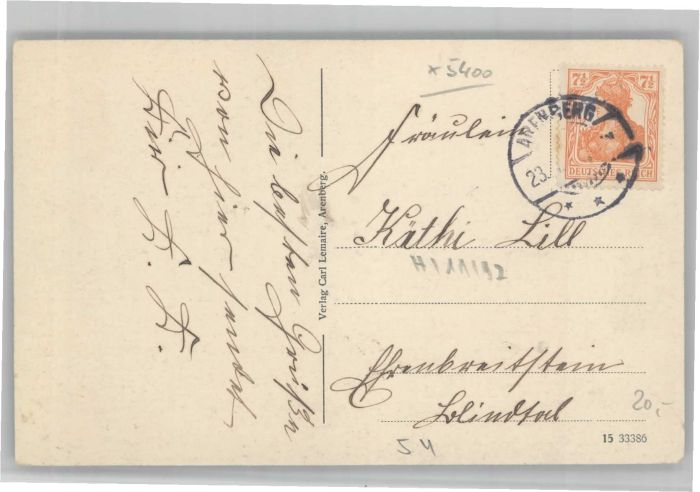 x 5400
7½ 7½
DEUTSCHES REICH
ARENBERG
23.
Die besten Grüße
von hier sendet
Dir
Verlag Carl Lemaire, Arenberg.
Fräulein
Käthi Lill
H/11192
Ehrenbreitstein
Blindtal
20,-
54
15 33386